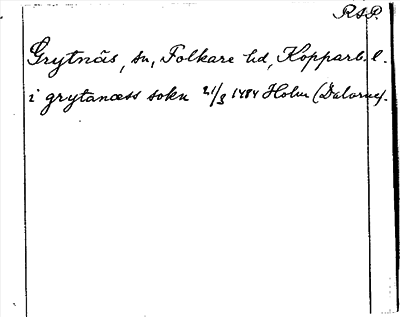 RAP.
Grytnäs, sn, Folkare hd, Kopparb. l.
i grytanæss sokn 21/3 1484 Holm (Dalarne).